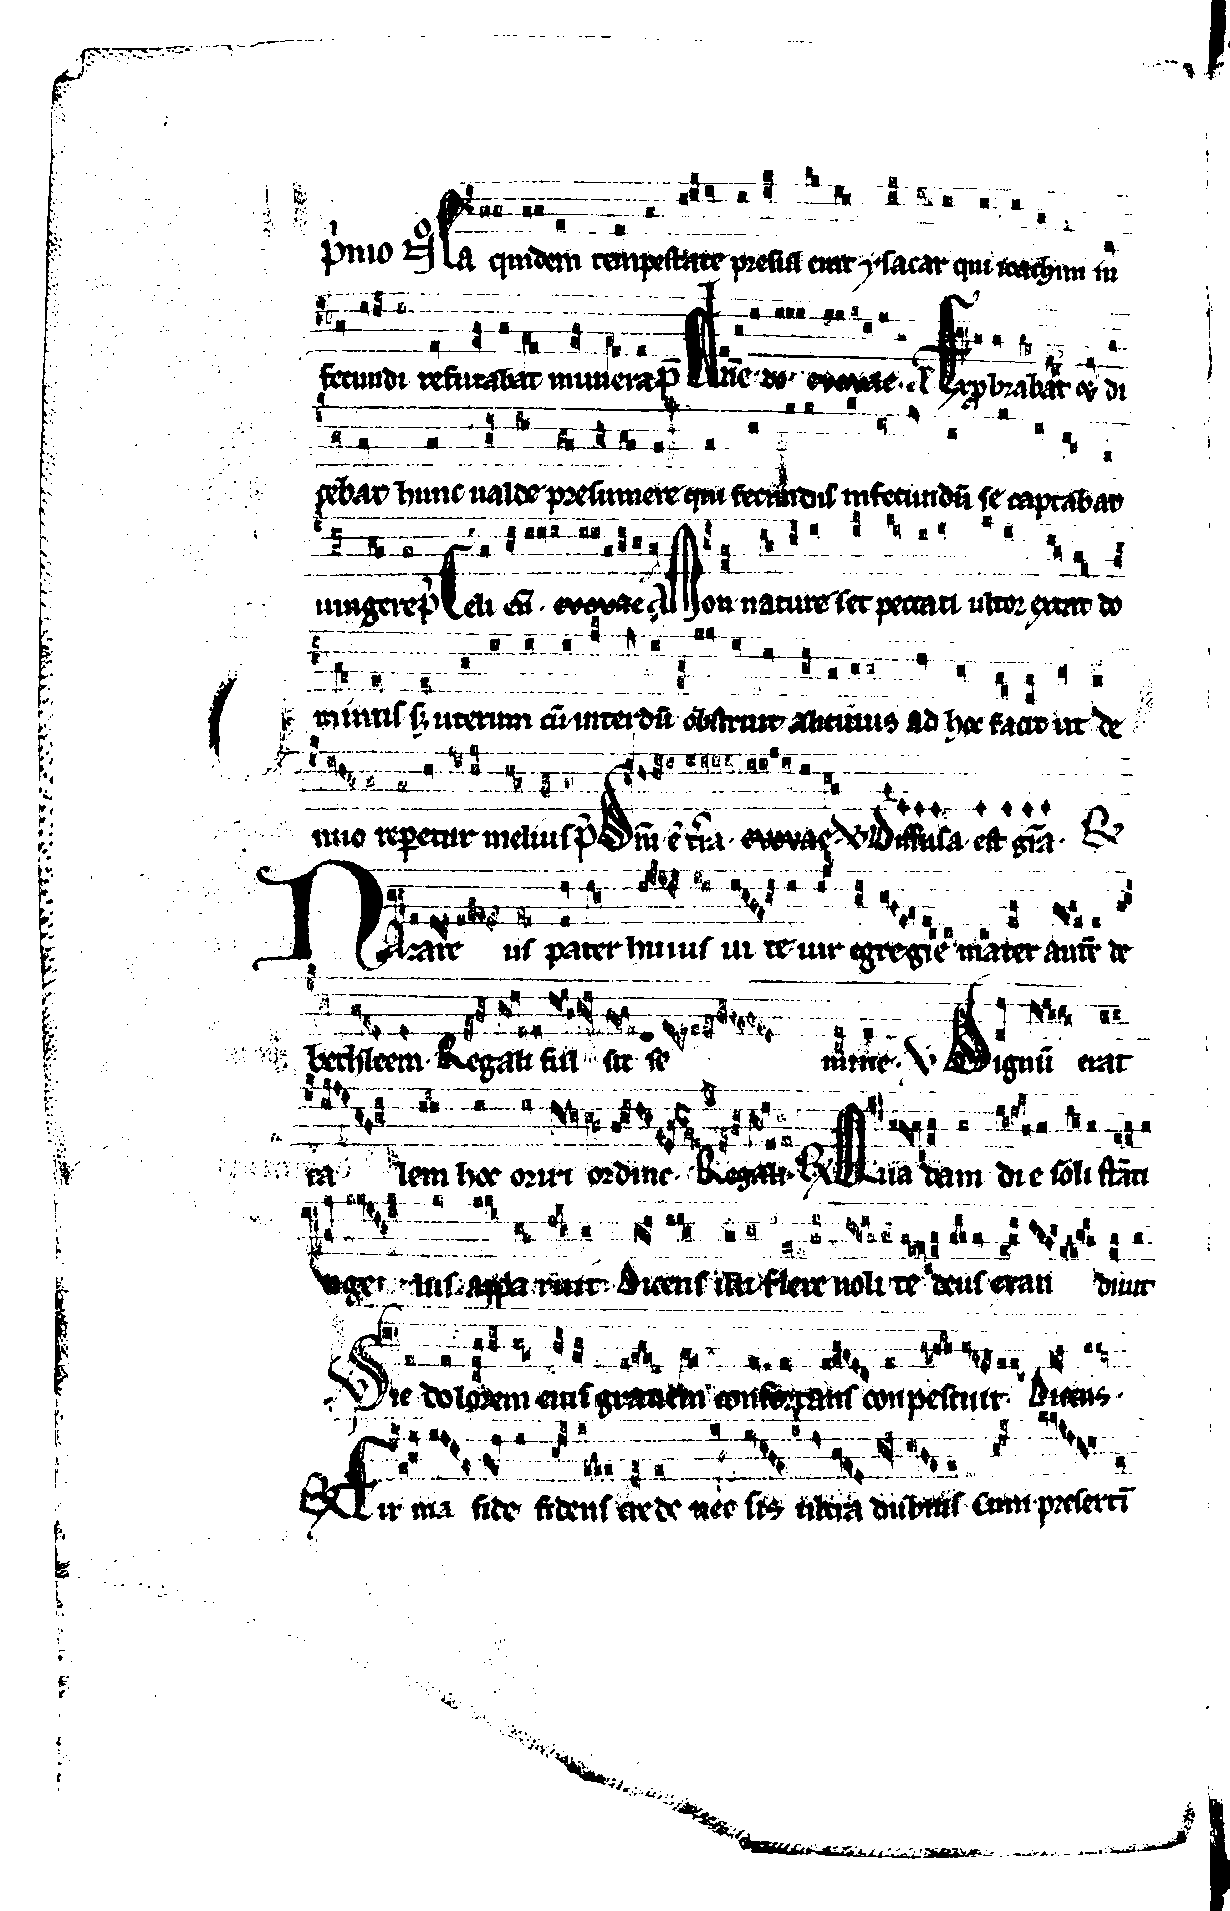 p̄mo n̊o Ea quidem tempestate presul erat ysacar qui ioachim in
fecundi refutabat munera p̄ Dn̄e do. euouae. a Exp̄brabat ⁊ di
cebat hunc ualde presumere qui fecundus infecundū se captabat
iungere p̄ Celi en̄. euouae a Non nature set peccati ultor extat do
minus s; uterum cū interdū obstruit alicuius ad hoc facit ut de
nuo reperetur melius p̄ Dn̄i ē t̄ra. euouae V Diffusa est gr̄a. R
Nazare us pater huius ui te uir egregie mater autē de
bethleem. Regali ful sit se mine. V Dignū erat
ta lem hoc oriri ordine. Regali. R Qua dam di e soli stāti
ange lus appa ruit. Dicens illi flere noli te deus exau diuit
V Sic dolorem eius grauem confortans conpescuit. Dicens.
R Fir ma fide fidens crede nec sis ultra dubius Cum presertī